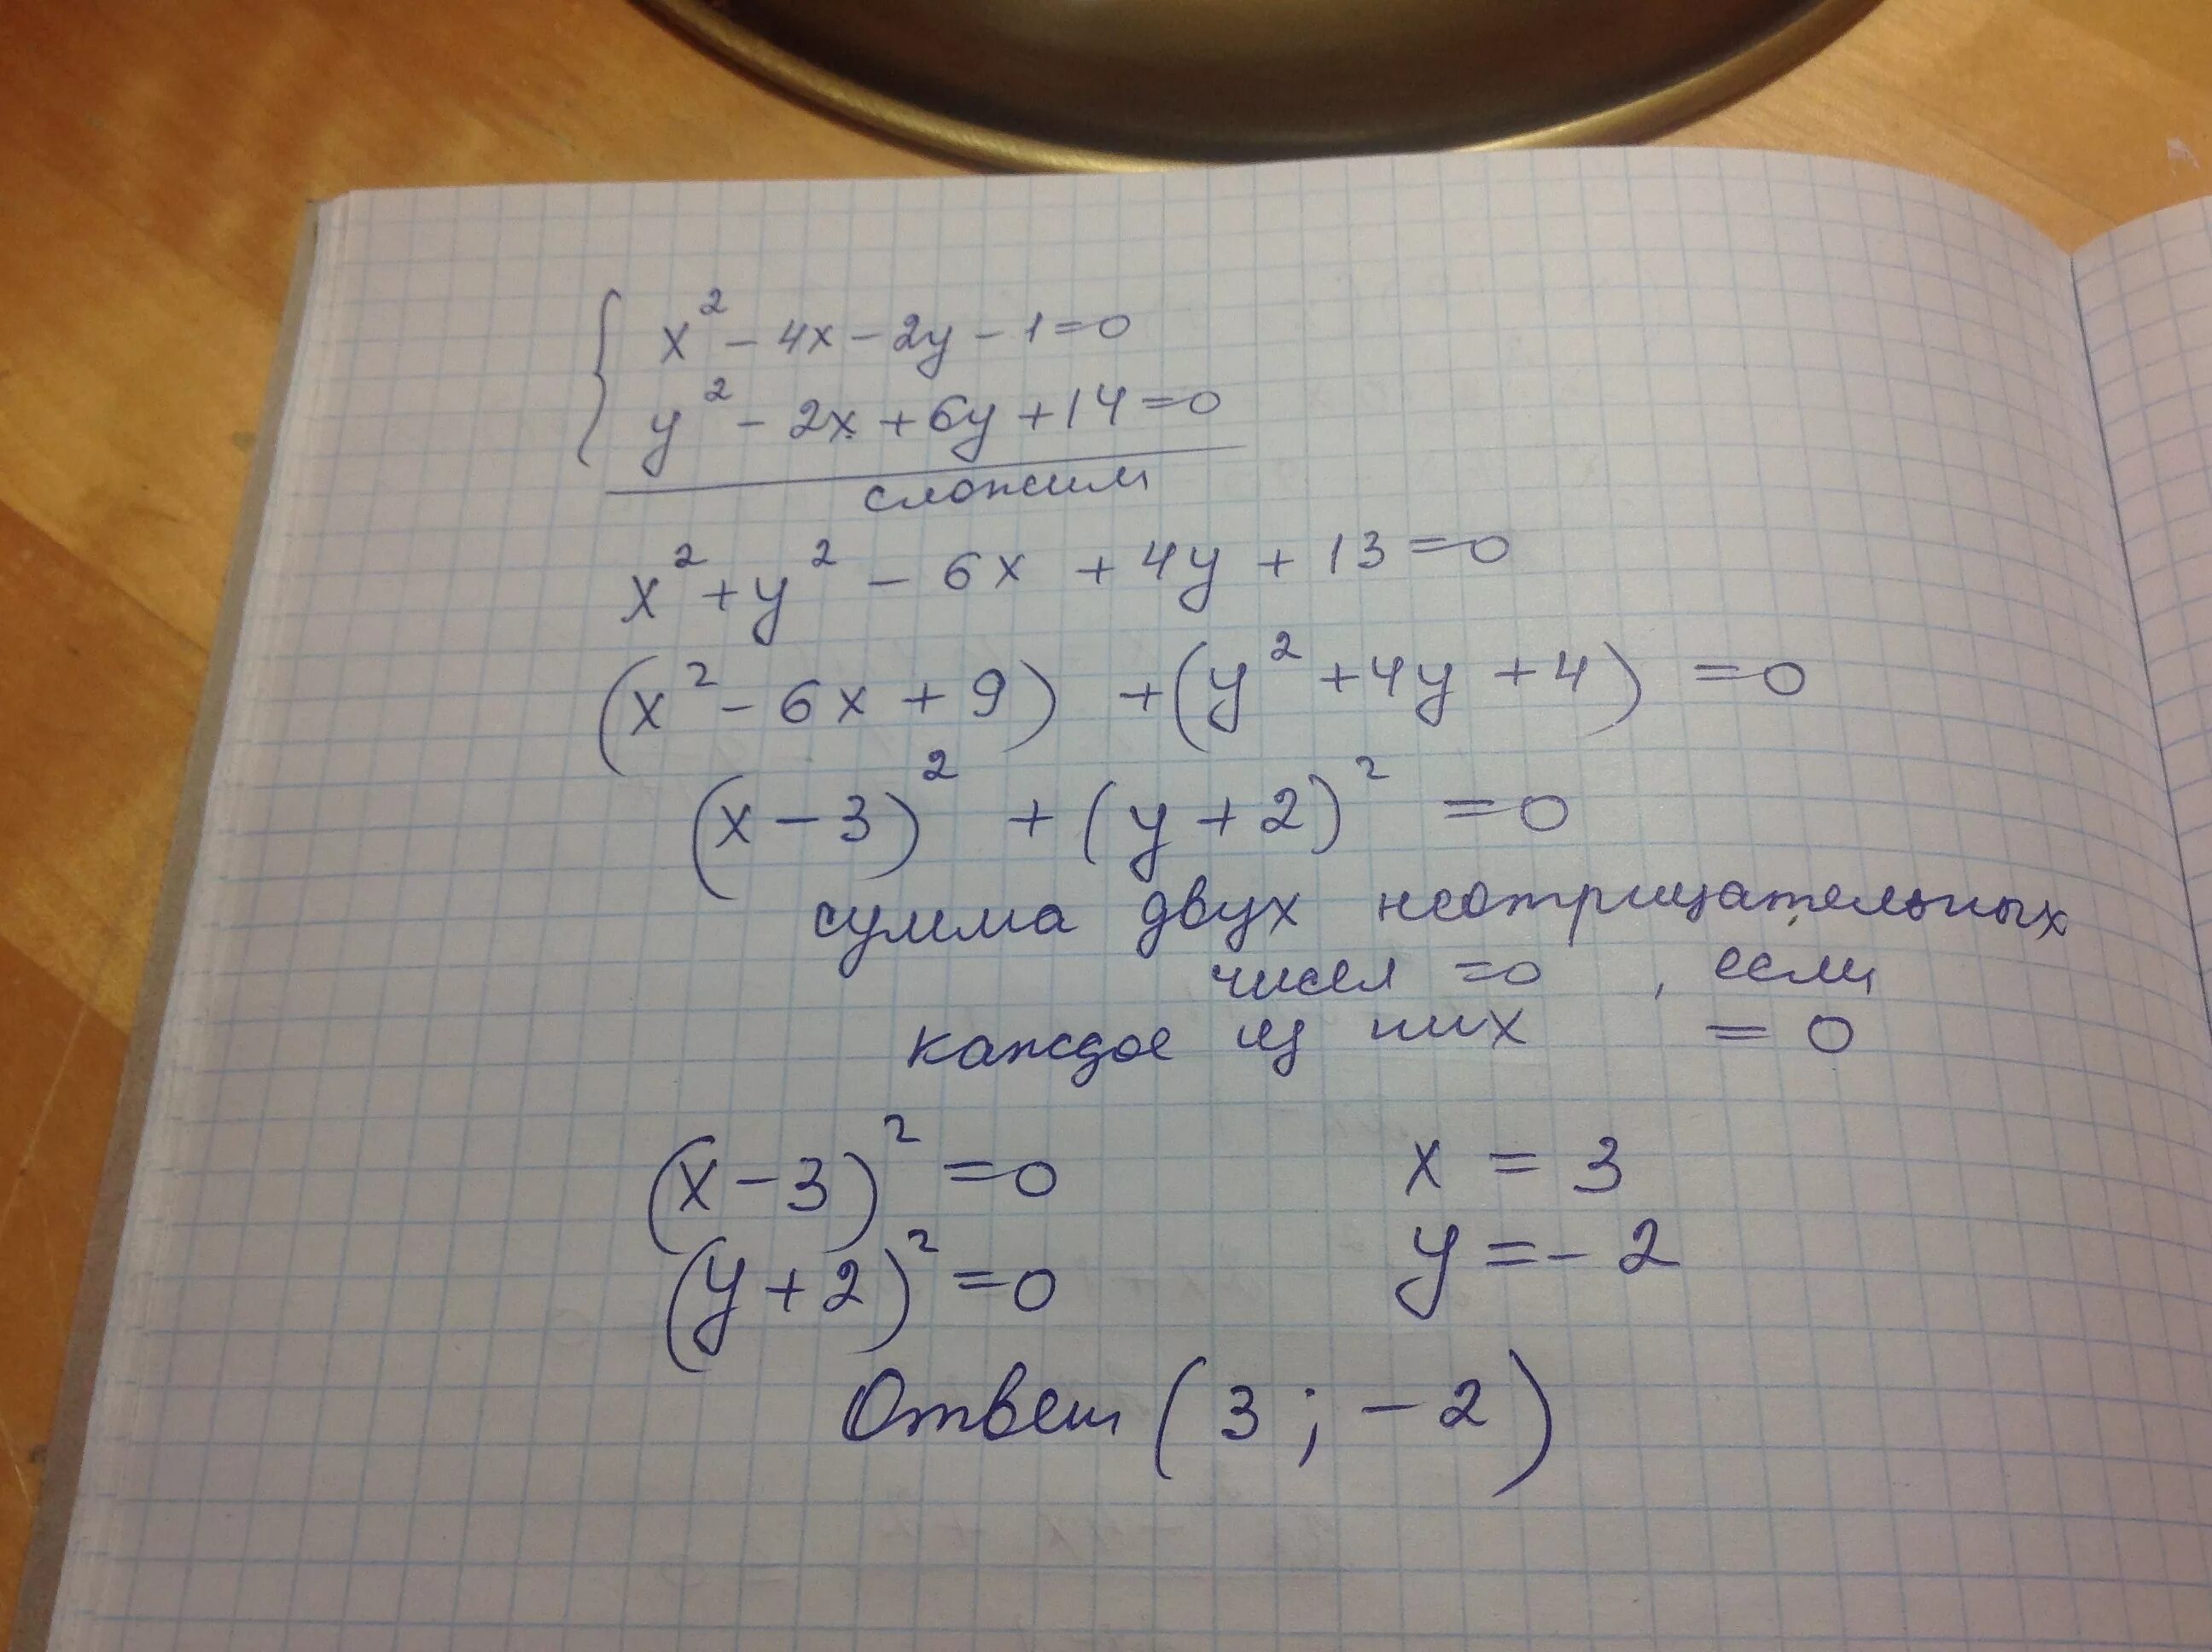 x² - 4x - 2y - 1 = 0
y² - 2x + 6y + 14 = 0
сложим
x² + y² - 6x + 4y + 13 = 0
(x² - 6x + 9) + (y² + 4y + 4) = 0
(x - 3)² + (y + 2)² = 0
сумма двух неотрицательных
чисел = 0 , если
каждое из них = 0
(x - 3)² = 0 x = 3
(y + 2)² = 0 y = - 2
Ответ (3 ; - 2)